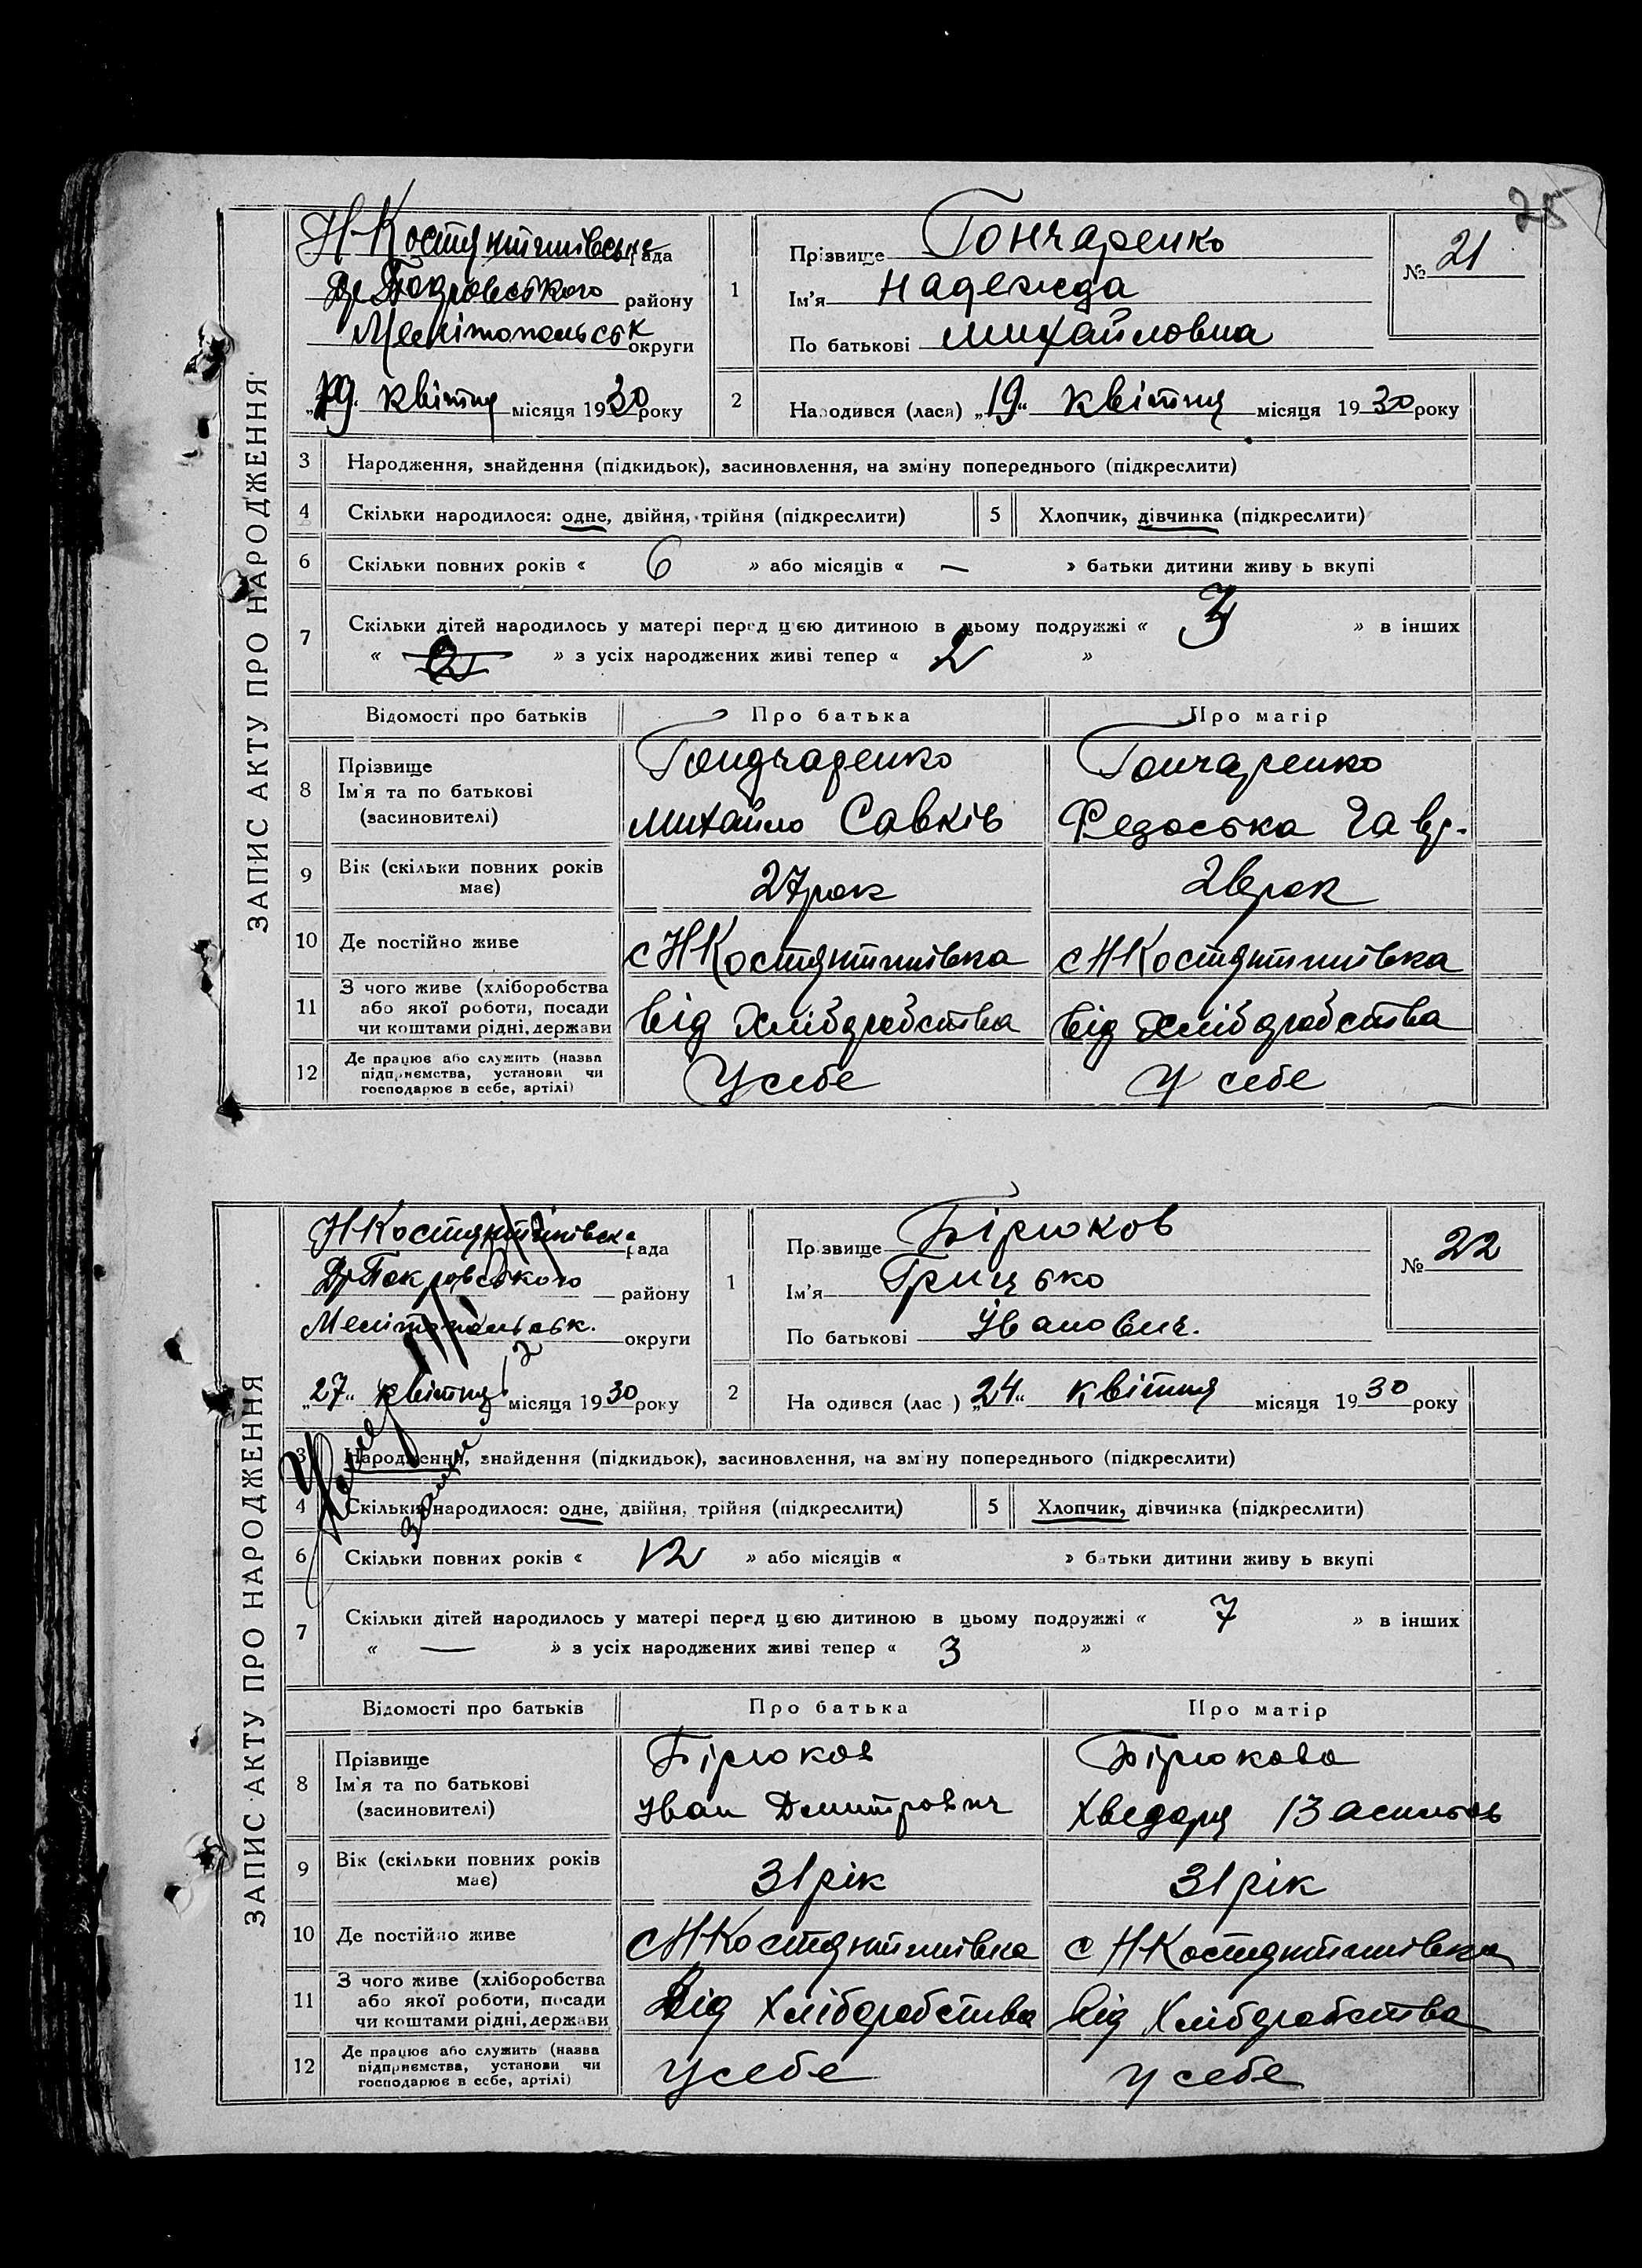 25
ЗАПИС АКТУ ПРО НАРОДЖЕННЯ
Н Костянтинівська рада
Др Покровського району
Мелітопольськ округи
„19“ квітня місяця 1930 року
1
Прізвище Гончаренко
Ім'я Надежда
По батькові Михайловна
№ 21
2 Народився (лася) „19“ квітня місяця 1930 року
3 Народження, знайдення (підкидьок), засиновлення, на зміну попереднього (підкреслити)
4 Скільки народилося: одне, двійня, трійня (підкреслити) 5 Хлопчик, дівчинка (підкреслити)
6 Скільки повних років « 6 » або місяців « — » батьки дитини живу ь вкупі
7 Скільки дітей народилось у матері перед цією дитиною в цьому подружжі « 3 » в інших
« » з усіх народжених живі тепер « 2 »
Відомості про батьків Про батька Про матір
8 Прізвище
Ім'я та по батькові
(засиновителі)
Гондчаренко
Михайло Савків
Гончаренко
Федоська Гавр.
9 Вік (скільки повних років має) 27 рок 26 рок
10 Де постійно живе с Н Костянтинівка с Н Костянтинівка
11 З чого живе (хліборобства
або якої роботи, посади
чи коштами рідні, держави
від хліборобства від хліборобства
12 Де працює або служить (назва
підприємства, установи чи
господарює в себе, артілі)
У себе У себе
ЗАПИС АКТУ ПРО НАРОДЖЕННЯ
Н Костянтинівска рада
Др Покровського району
Мелітопольськ. округи
„27“ квітня місяця 1930 року
1
Прізвище Бірюков
Ім'я Грицько
По батькові Іванович.
№ 22
2 На одився (лас ) „24“ квітня місяця 1930 року
3 Народження, знайдення (підкидьок), засиновлення, на зміну попереднього (підкреслити)
4 Скільки народилося: одне, двійня, трійня (підкреслити) 5 Хлопчик, дівчинка (підкреслити)
6 Скільки повних років « 12 » або місяців « » батьки дитини живу ь вкупі
7 Скільки дітей народилось у матері перед цією дитиною в цьому подружжі « 7 » в інших
« — » з усіх народжених живі тепер « 3 »
Відомості про батьків Про батька Про матір
8 Прізвище
Ім'я та по батькові
(засиновителі)
Бірюков
Іван Дмитрович
Бірюкова
Хведоря
9 Вік (скільки повних років має) 31 рік 31 рік
10 Де постійно живе с Н Костянтинівка с Н Костянтинівка
11 З чого живе (хліборобства
або якої роботи, посади
чи коштами рідні, держави
Від хліборобства від хліборобства
12 Де працює або служить (назва
підприємства, установи чи
господарює в себе, артілі)
У себе У себе